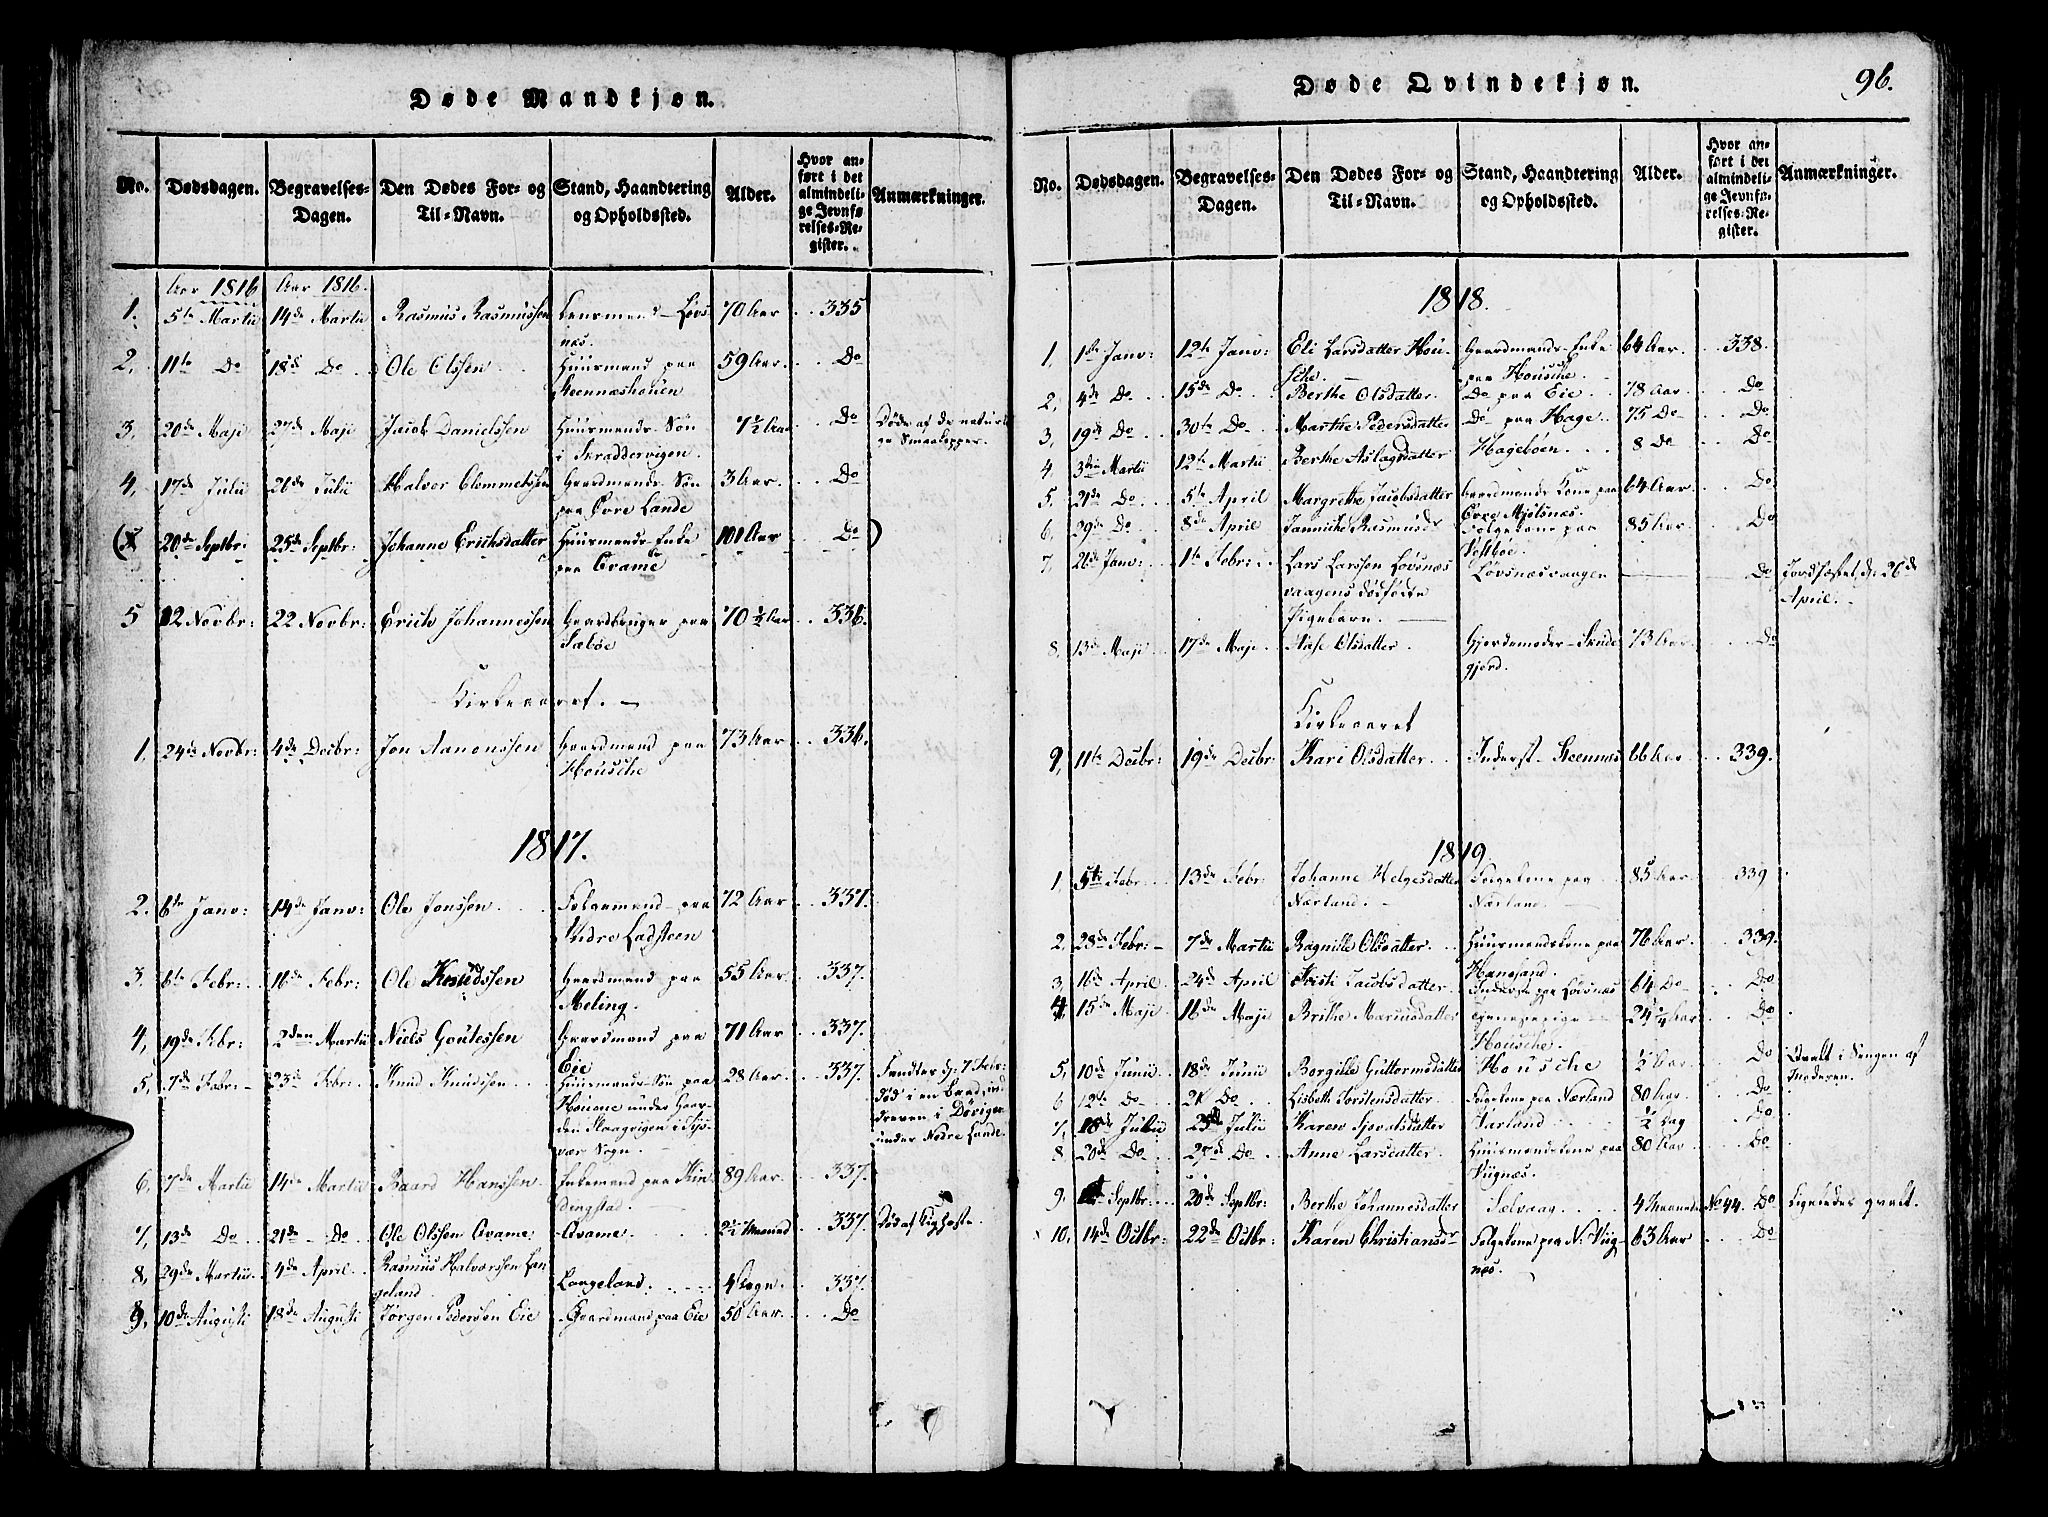 Døde Mandkjøn.
No. Dødsdagen. Begravelses-Dagen. Den Dødes For- og Til-Navn. Stand, Haandtering og Opholdssted. Alder. Hvor anført i det almindelige Jevnførelses-Register. Anmærkninger.
Aar 1816 Aar 1816.
1. 5te Martii 14de Martii Rasmus Rasmussen Lensmand - Løvs 70 Aar 335
næs.
2. 11te Do 18de Do Ole Olssen Huusmand paa 59 Aar Do
Steennæshouen
3. 20de Maji 27de Maji Jacob Danielssen Huusmands Søn 7½ Aar Do Døde af de naturli
i Skraddervigen. ge Smaakopper.
4. 17de Julii 26de Julii Halvor Clommetssen Gaardmands Søn 3 Aar. Do
paa Øvre Lande
20de Septbr: 25de Septbr: Johanne Erichsdatter Huusmands Enke 101 Aar Do
paa Qvame
5 12 Novbr: 22 Novbr: Erich Johannessen Gaardbruger paa 70½ Aar 336.
Sæbøe
Kirkeaaret.
1. 24de Novbr: 4de Decbr: Jon Aanonssen Gaardmand paa 73 Aar 336.
Housche
1817.
2. 6te Janv: 14de Janv: Ole Jonssen Følgemand paa 72 Aar 337.
Indre Ladsteen
3. 6te Febr: 16de Febr: Ole Knudssen Gaardmand paa 55 Aar 337.
Meling.
4. 19de Febr: 2den Martii Niels Goutessen Gaardmand paa 71 Aar 337.
Eie
5. 7de Febr: 23de Febr: Knud Knudssen Huusmands Søn paa 28 Aar 337. Fandtes d: 7 Febr:
Houene under Gaar død i en Baad, ind
den Skaagvigen i Tys dreven i Dørigen
vær Sogn. under Nedre Lande.
6. 7de Martii 14de Martii Baard Hanssen Enkemand paa Kin 89 Aar 337.
dingstad.
7. 13de Do 21de Do Ole Olssen Qvame Qvame 2½ Maaned 337. Død af Kighoste.
8. 29de Martii 4de April Rasmus Halvorssen Lan
geland Langeland. 4 Dage. 337.
9. 10de Augusti 18de Augusti Jørgen Pedersen Eie Gaardmand paa Eie 50 Aar Do
Døde Qvindekjøn. 96.
No. Dødsdagen. Begravelses-Dagen. Den Dødes For- og Til-Navn. Stand, Haandtering og Opholdssted. Alder. Hvor anført i det almindelige Jevnførelses-Register. Anmærkninger.
1818.
1. 1ste Janv: 12te Janv: Eli Larsdatter Hou Gaardmands Enke 64 Aar. 338.
sche. paa Housche
2. 4de Do 15de Do Berthe Olsdatter. Do paa Eie 78 Aar Do
3. 19de Do 30te Do Marthe Pedersdatter Do paa Hage 75 Do Do
4. 3die Martii 12te Martii Berthe Aslagsdatter Hagebøen 8 Do Do
5. 21de Do 5te April Margrethe Jacobsdatter Gaardmands Kone paa 64 Aar. Do
Øvre Mjølsnæs.
6. 29de Do 8de April Jannicke Rasmusdr Følgekone paa 85 Aar Do
Vestbøe.
7. 26de Janv: 1te Febr: Lars Larssen Løvsnæs Løvsnæsvaagen Do Jordfæstet d: 26de
vaagens dødfødte April.
Pigebarn.
8. 13de Maji 17de Maji Aase Olsdatter Gjordemoder - Skude 73 Aar Do
gjerd.
Kirkeaaret
9. 11te Decbr: 19de Decbr: Kari Olsdatter Inderst - Steennæs 66 Aar 339.
1819
1. 5te Febr: 13de Febr: Johanne Helgesdatter Følgekone paa 85 Aar 339
Nærland. Nærland.
2. 28de Febr: 7de Martii Ragnille Olsdatter. Huusmandskone paa 76 Aar 339.
Hanasand.
3. 16de April 24de April Kristi Jacobsdatter. Inderste paa Løvsnæs 64 Do Do
4. 15de Maji 16de Maji Brithe Mariusdatter Tjenestepige 24¼ Aar Do
Housche.
5. 10de Junii 18de Junii Borgille Guttormsdatter Housche ½ Aar Do Qvalt i Sengen af
Moderen.
6 12te Do 21 Do Lisbeth Torstensdatter Følgekone paa Nærland 80 Aar. Do
7. 18de Julii 25de Julii Karen Sjovalsdatter Nærland ½ Dag Do
8. 20de Do 27de Do Anne Larsdatter Huusmandskone paa 80 Aar Do
Viignæs.
9. Septbr: 20de Septbr: Berthe Johannesdatter Selvaag No 44. Do Ligeledes qvalt.
10. 14de Octbr: 22de Octbr: Karen Christiansdr Følgekone paa N. Viig 63 Aar Do
næs.